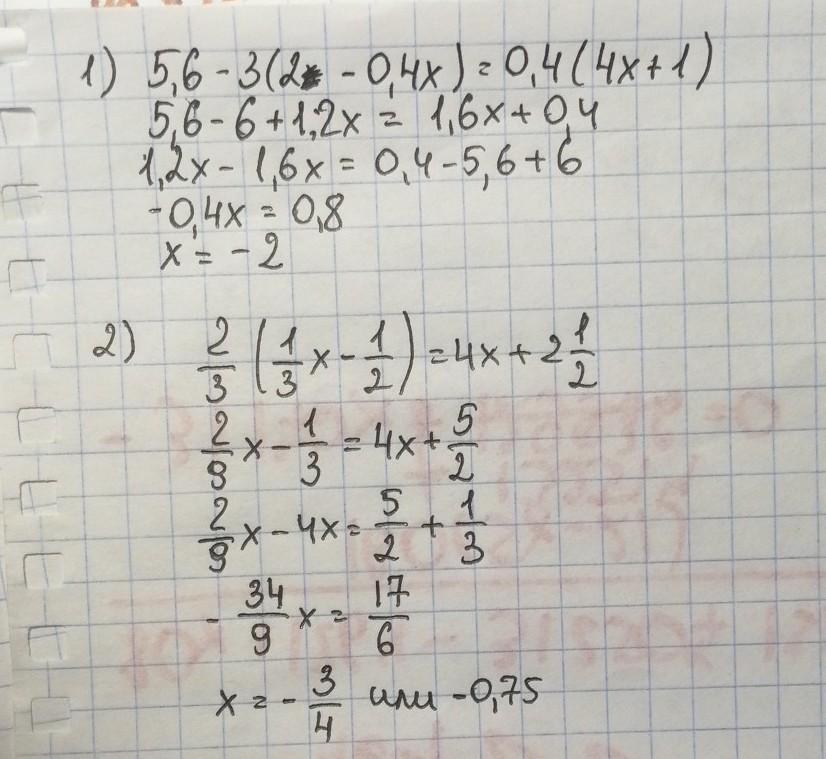 1) 5,6 - 3(2 - 0,4x) = 0,4(4x + 1)
5,6 - 6 + 1,2x = 1,6x + 0,4
1,2x - 1,6x = 0,4 - 5,6 + 6
-0,4x = 0,8
x = -2
2) 2/3 (1/3 x - 1/2) = 4x + 2 1/2
2/9 x - 1/3 = 4x + 5/2
2/9 x - 4x = 5/2 + 1/3
- 34/9 x = 17/6
x = - 3/4 или -0,75